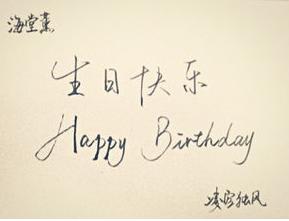 海堂薰
生日快乐
Happy Birthday
凌空独风